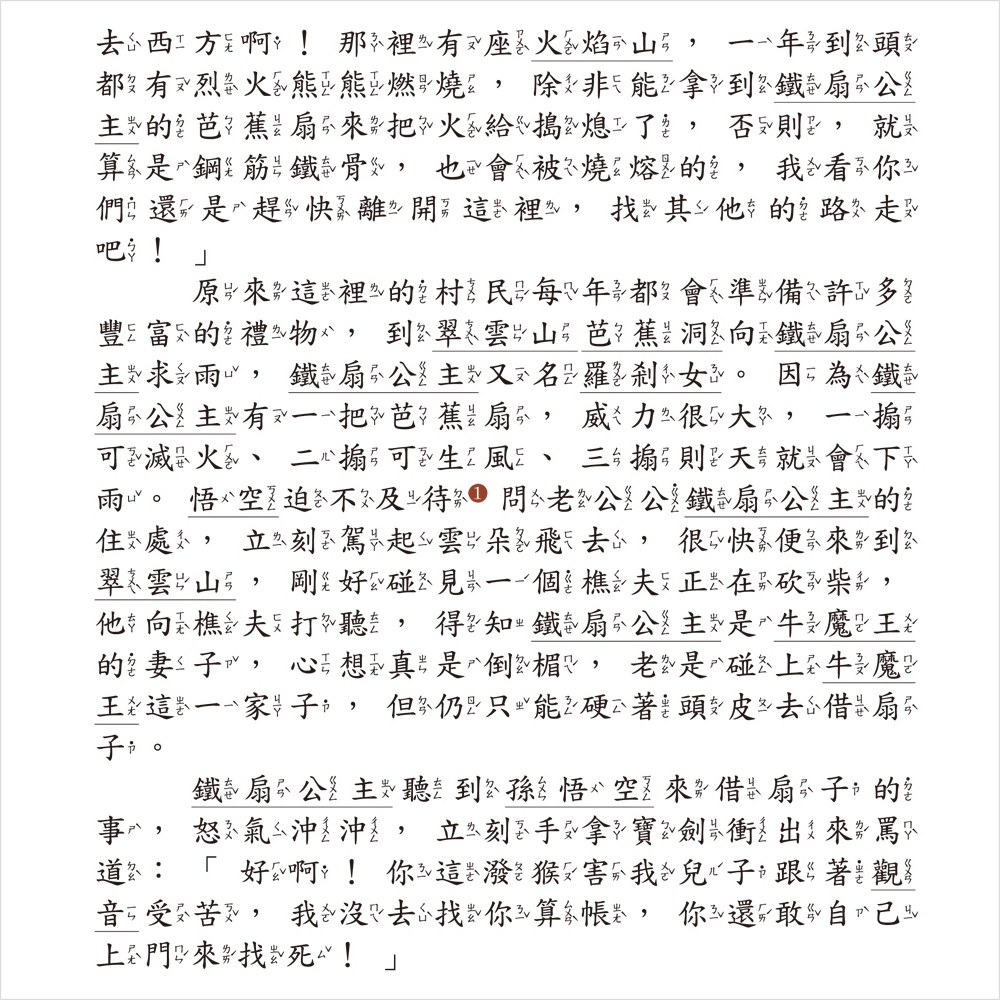 去西方啊！那裡有座火焰山，一年到頭
都有烈火熊熊燃燒，除非能拿到鐵扇公
主的芭蕉扇來把火給搗熄了，否則，就
算是鋼筋鐵骨，也會被燒熔的，我看你
們還是趕快離開這裡，找其他的路走
吧！」
原來這裡的村民每年都會準備許多
豐富的禮物，到翠雲山芭蕉洞向鐵扇公
主求雨，鐵扇公主又名羅剎女。因為鐵
扇公主有一把芭蕉扇，威力很大，一搧
可滅火、二搧可生風、三搧則天就會下
雨。悟空迫不及待❶問老公公鐵扇公主的
住處，立刻駕起雲朵飛去，很快便來到
翠雲山，剛好碰見一個樵夫正在砍柴，
他向樵夫打聽，得知鐵扇公主是牛魔王
的妻子，心想真是倒楣，老是碰上牛魔
王這一家子，但仍只能硬著頭皮去借扇
子。
鐵扇公主聽到孫悟空來借扇子的
事，怒氣沖沖，立刻手拿寶劍衝出來罵
道：「好啊！你這潑猴害我兒子跟著觀
音受苦，我沒去找你算帳，你還敢自己
上門來找死！」